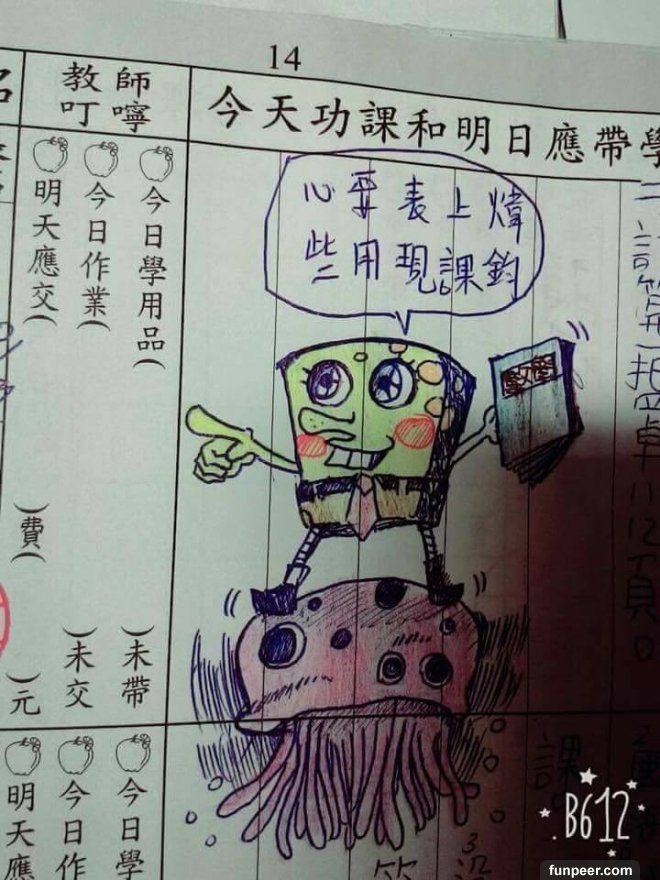 14
今天功課和明日應帶學
教師
叮嚀
煒鈞
上課
表現
要用
心些
數學
今日學用品( )未帶
今日作業( )未交
明天應交( )費( )元
今日學
今日作
明天應
課。
B612
funpeer.com